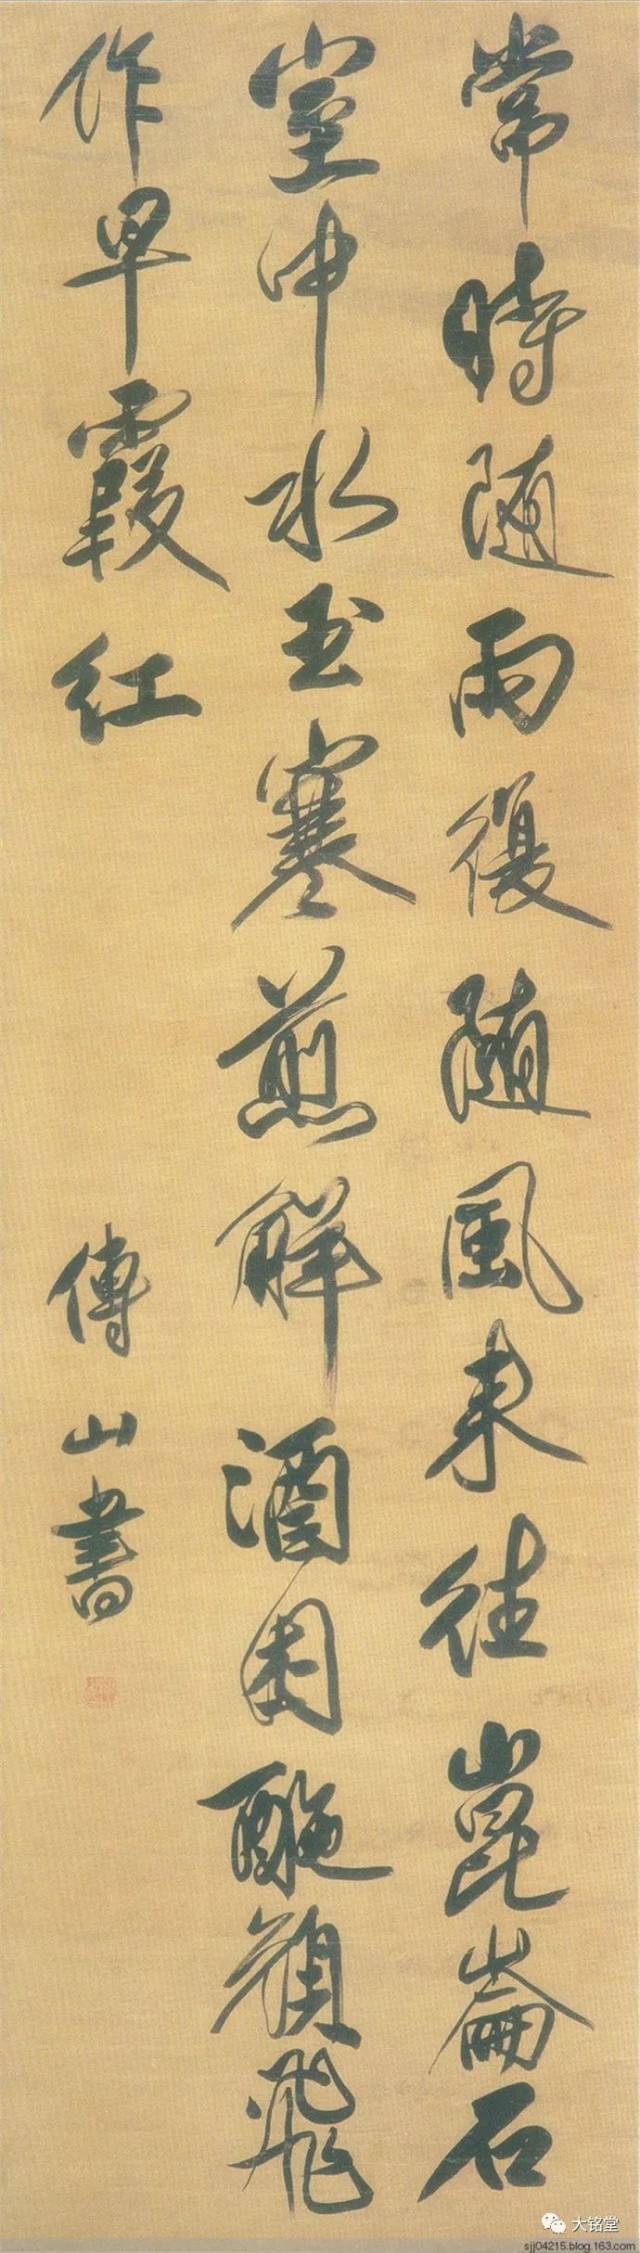 常時随雨復随風来往崑崙石
室中水玉寒煎解酒困酡顔飛
作早霞紅
傅山書
大铭堂
sjj04215.blog.163.com